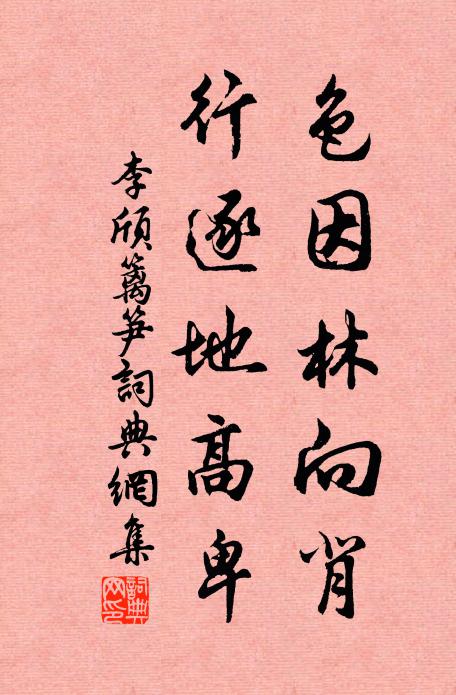 色因林向背
行逐地高卑
李頎籬笋詞典網集
詞典網印